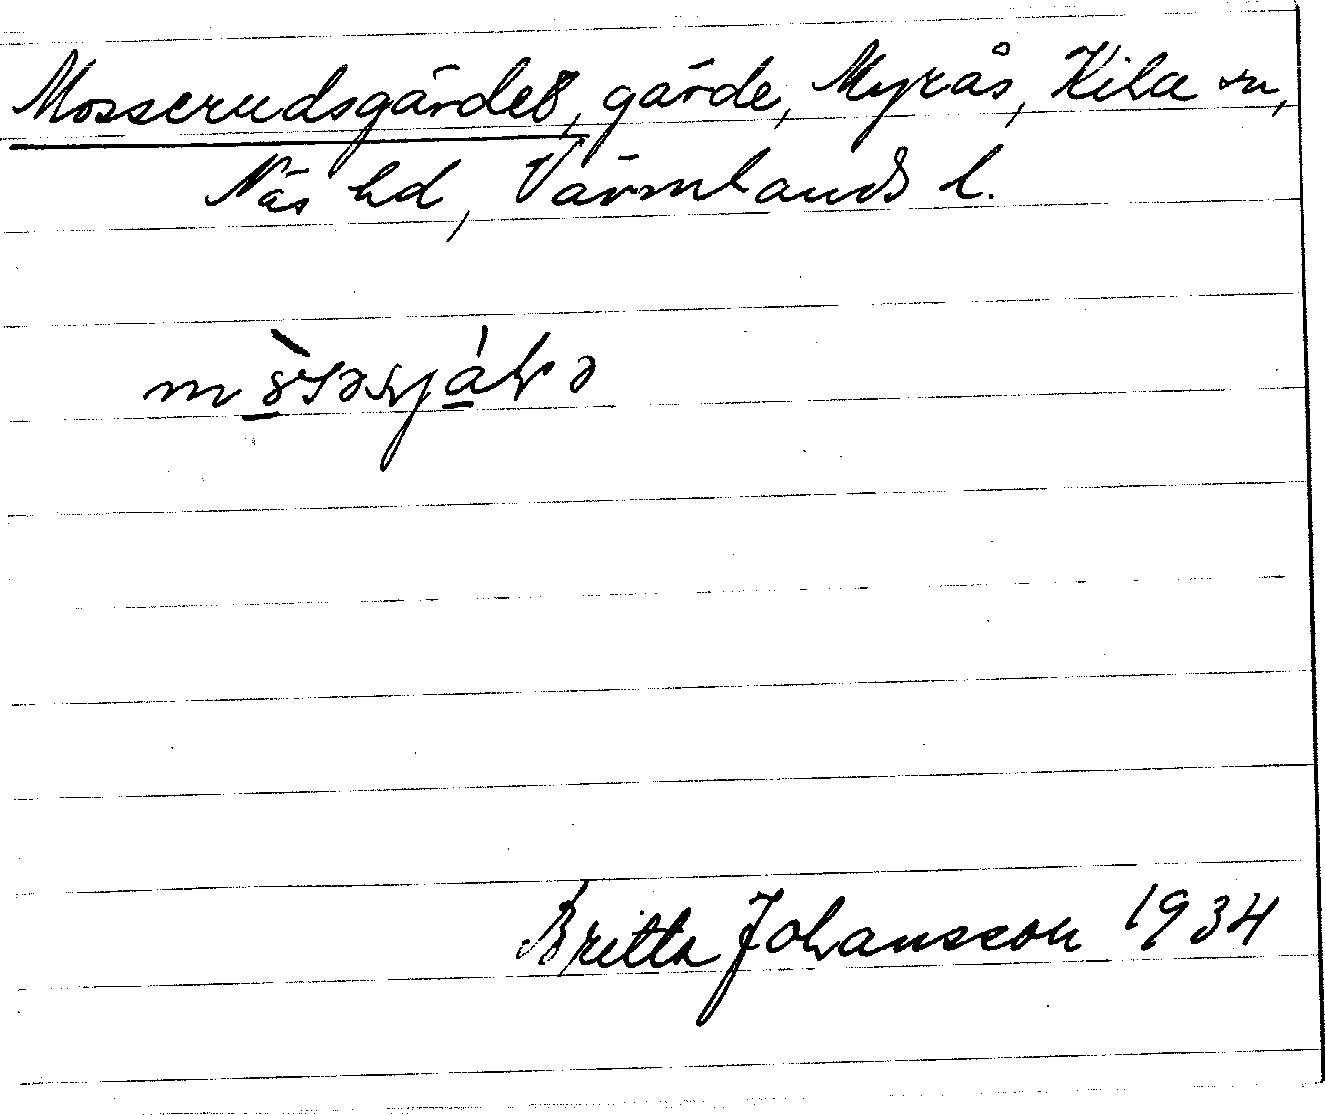 Mosserudsgärdet, gärde, Myrås, Kila sn,
Näs hd, Värmlands l.
Britta Johansson 1934